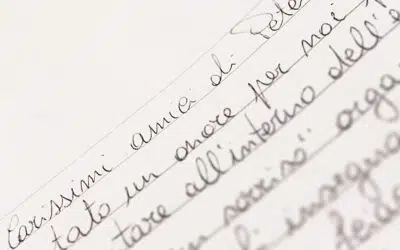 Carissimi amici di Pete
tato un onore per noi
tare all'interno dell'e
un sorriso" orga
di insegna